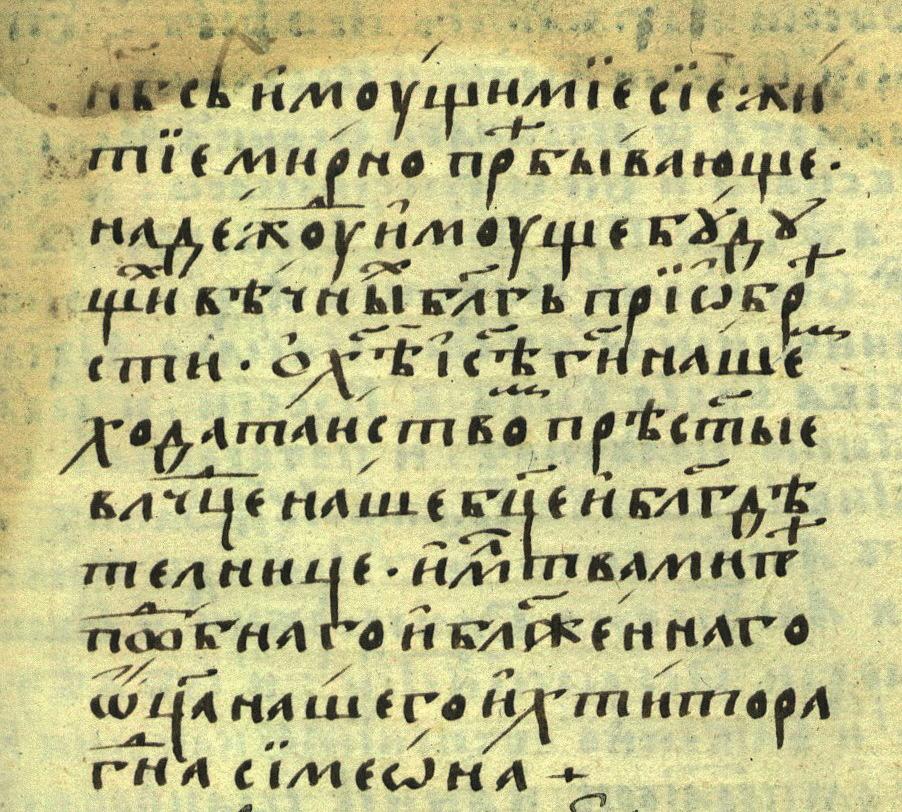 нѣ съ и҆моущимїе сїе жи
тїе мирно прѣбыва́юще·
наде́ждоу и҆моуще бꙋ́дꙋ
щи̑х вѣчны̑х бл҃гь прїѡ҆брѣ
сти· ѡ҆ х҃ѣ і҆с҃ѣ г҃и нашем
ходатаиством прѣст҃ые
влⷣчце на́ше бц҃е и҆ бл҃гдѣ
телнице· и҆ мл҃твами прѣ
пⷣобнаго и҆ бл҃же́ннаго
ѿц҃а на́шего и҆ хти́тора
гⷭ҇на сїмеѡ́на +